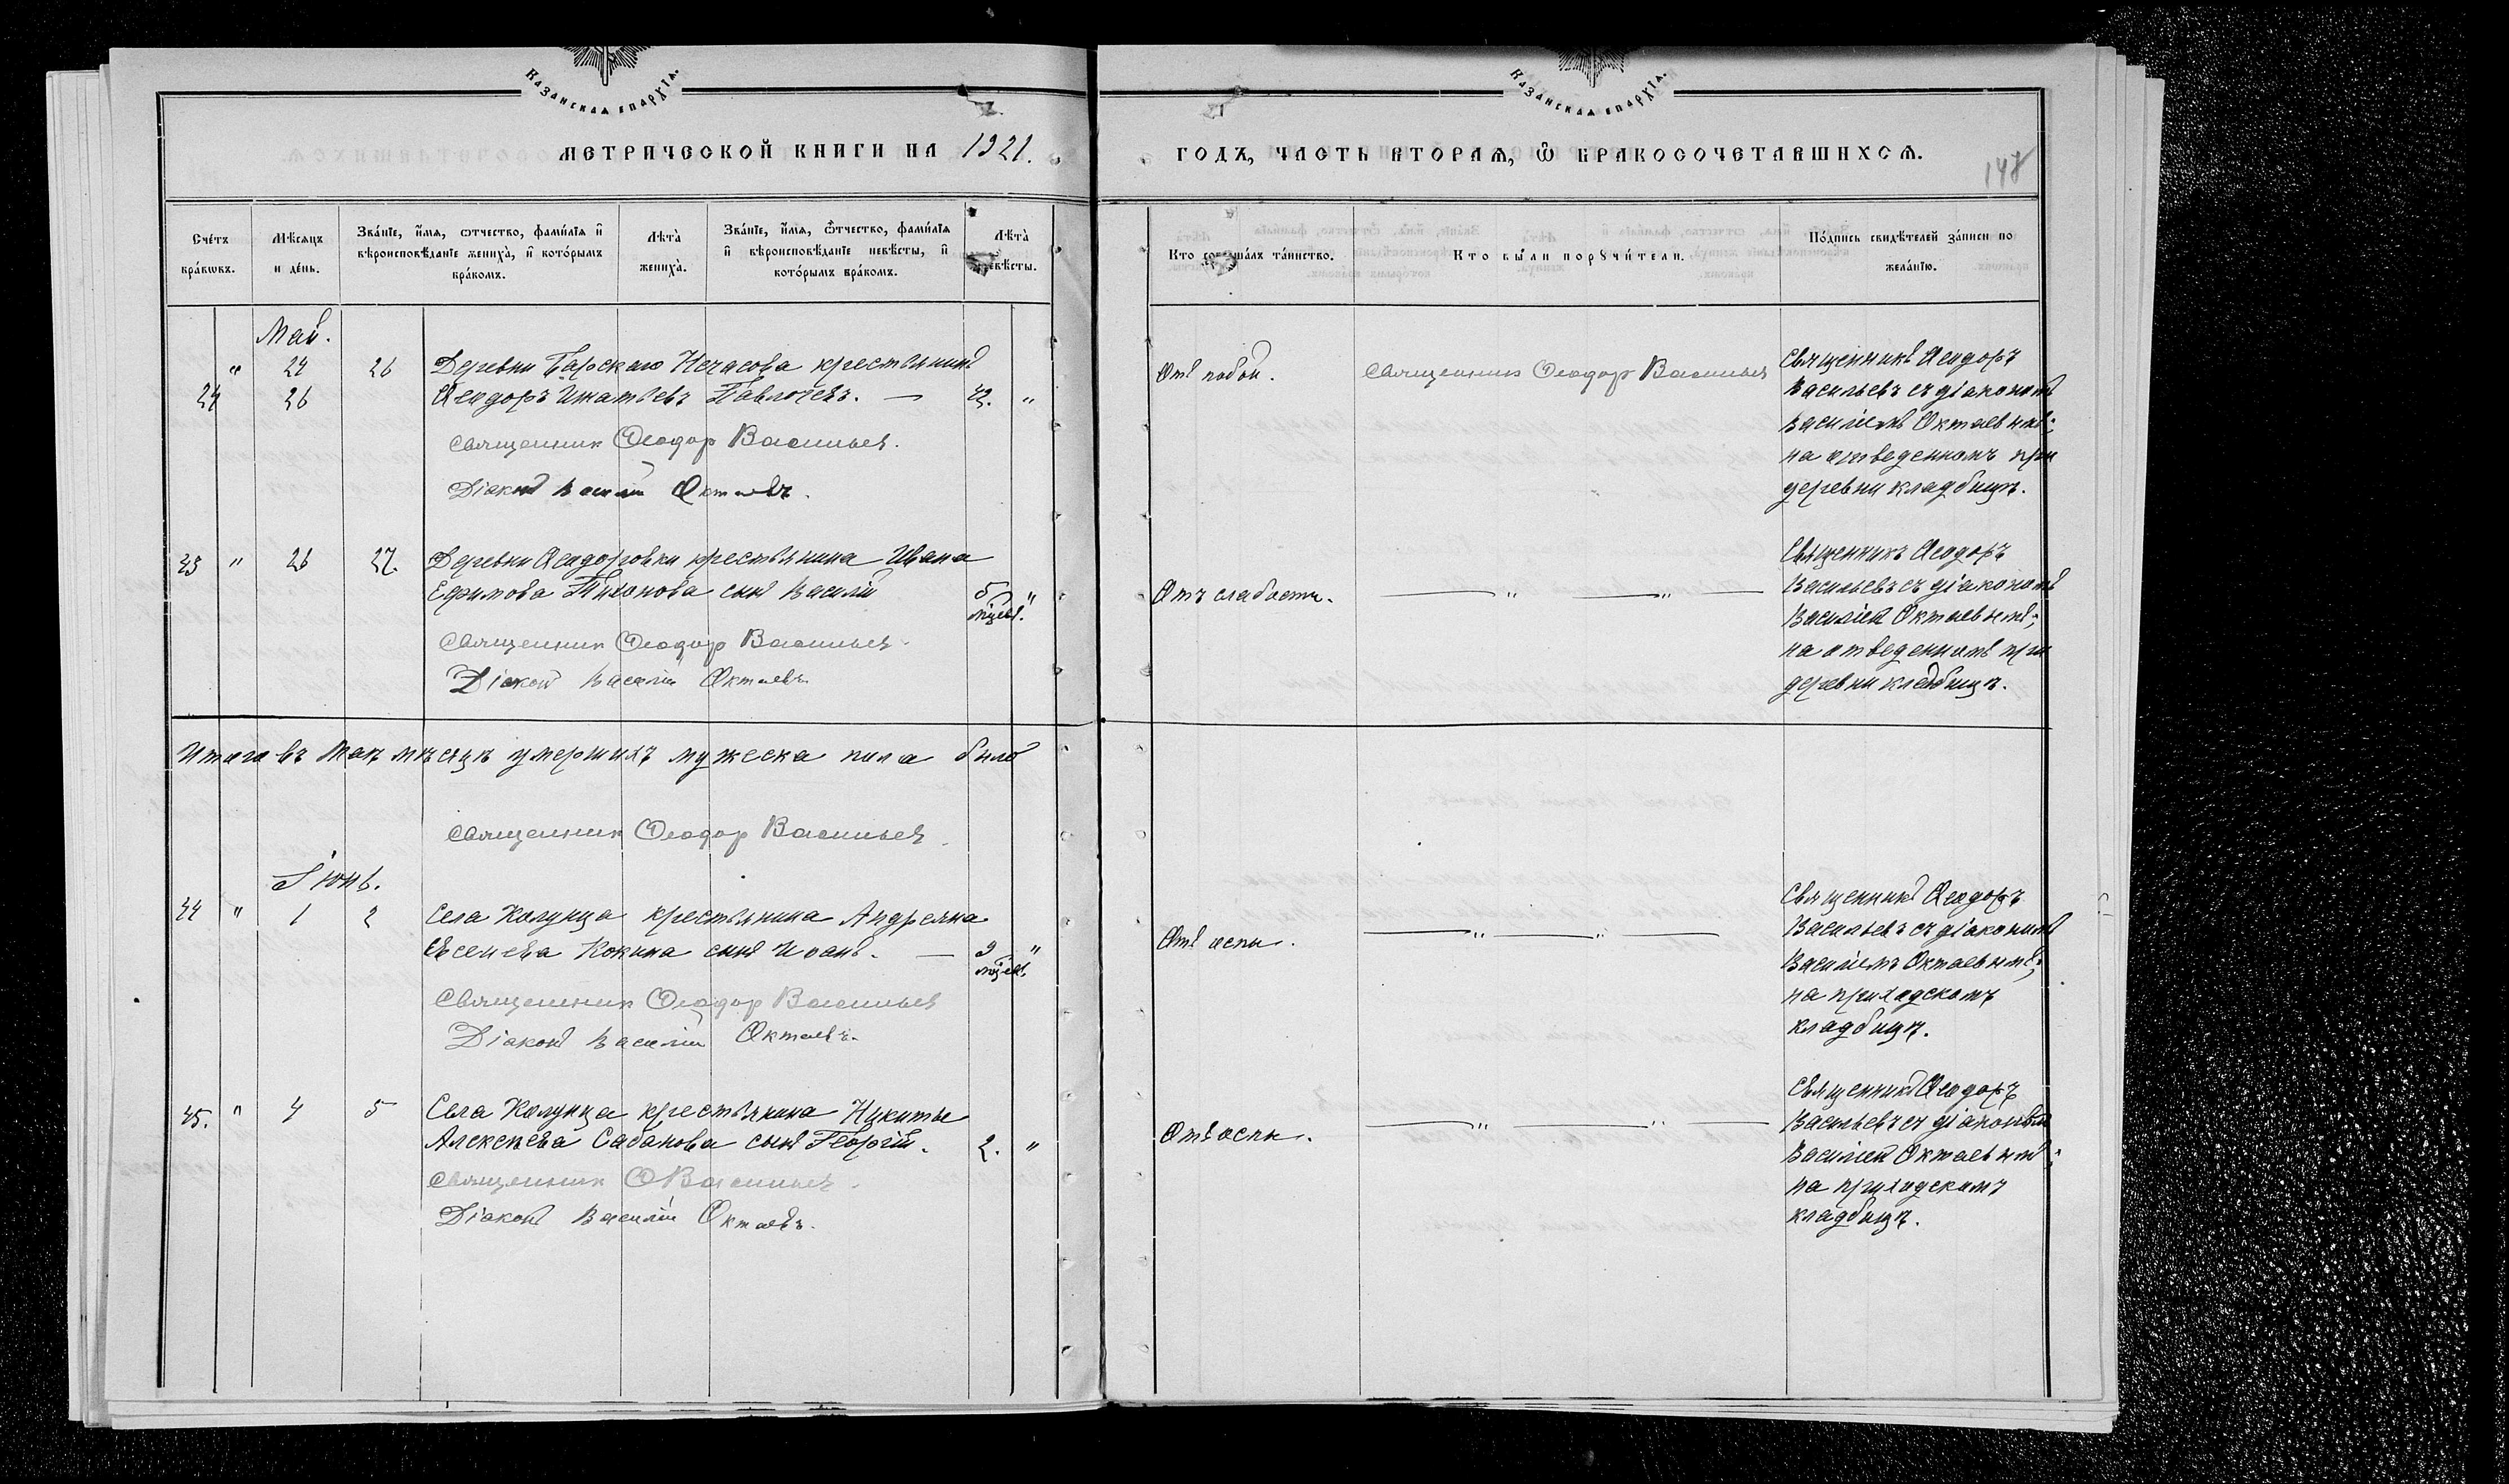 Казанская епархїя.
Казанская епархїя.
МЕТРИЧЕСКОЙ КНИГИ НА 1921.
ГОДЪ, ЧАСТЬ ВТОРАЯ, Ѿ БРАКОСОЧЕТАВШИХСЯ.
148
Сче́тъ бра́кωвъ.
Мѣ́сяцъ и де́нь.
Зва́нїе, и́мя, ѻтчество, фами́лїя и вѣроисповѣ́данїе жениха̀, и кото́рымъ бра́комъ.
Лѣта̀ жениха̀.
Зва́нїе, и́мя, ѻтчество, фами́лїя и вѣроисповѣ́данїе невѣ́сты, и кото́рымъ бра́комъ.
Лѣта̀ невѣ́сты.
Кто соверша́лъ та́инство.
Кто бы́ли порꙋчи́тели.
По́дпись свидѣ́телей за́писи по жела́нїю.
Май.
" 24 26 Деревни Барскаго крестьянинъ
26 Ѳеодоръ Игнатьевъ Павлочевъ. — 42. "
Священник Ѳеодор Васильев.
Діаконъ Василій Октаевъ.
Отъ побои.
Священник Ѳеодор Васильев
Священникъ Ѳеодоръ
Васильевъ съ діакономъ
Василіемъ Октаевымъ;
на отведенномъ при
деревни кладбищѣ.
43 " 26 27. Деревни Ѳеодоровки крестьянина Ивана
Ефимова Тихонова сынъ Василій 5 "
мѣсец.
Священник Ѳеодор Васильев.
Діаконъ Василій Октаевъ
Отъ слабости.
— " — " —
Священникъ Ѳеодоръ
Васильевъ съ діакономъ
Василіем Октаевымъ;
на отведенномъ при
деревни кладбищѣ.
Итого въ Маѣ мѣсяцѣ умершихъ мужеска пола было
Священник Ѳеодор Васильев.
Іюнь.
44 " 1 2 Села Колунца крестьянина Андреяна
Евсеиева Кокина сынъ Иоанъ. — 9 "
мѣсец.
Священник Ѳеодор Васильев
Діаконъ Василій Октаевъ.
Отъ оспы.
— " — " —
Священникъ Ѳеодоръ
Васильевъ съ діакономъ
Василіемъ Октаевымъ;
на приходскомъ
кладбищѣ.
45. " 4 5 Села Колунца крестьянина Никиты
Алексѣева Сабанова сынъ Георгій. 2. "
Священник Ѳ Васильев.
Діаконъ Василій Октаевъ.
Отъ оспы.
— " — " —
Священникъ Ѳеодоръ
Васильевъ съ діакономъ
Василіем Октаевымъ;
на приходскомъ
кладбищѣ.